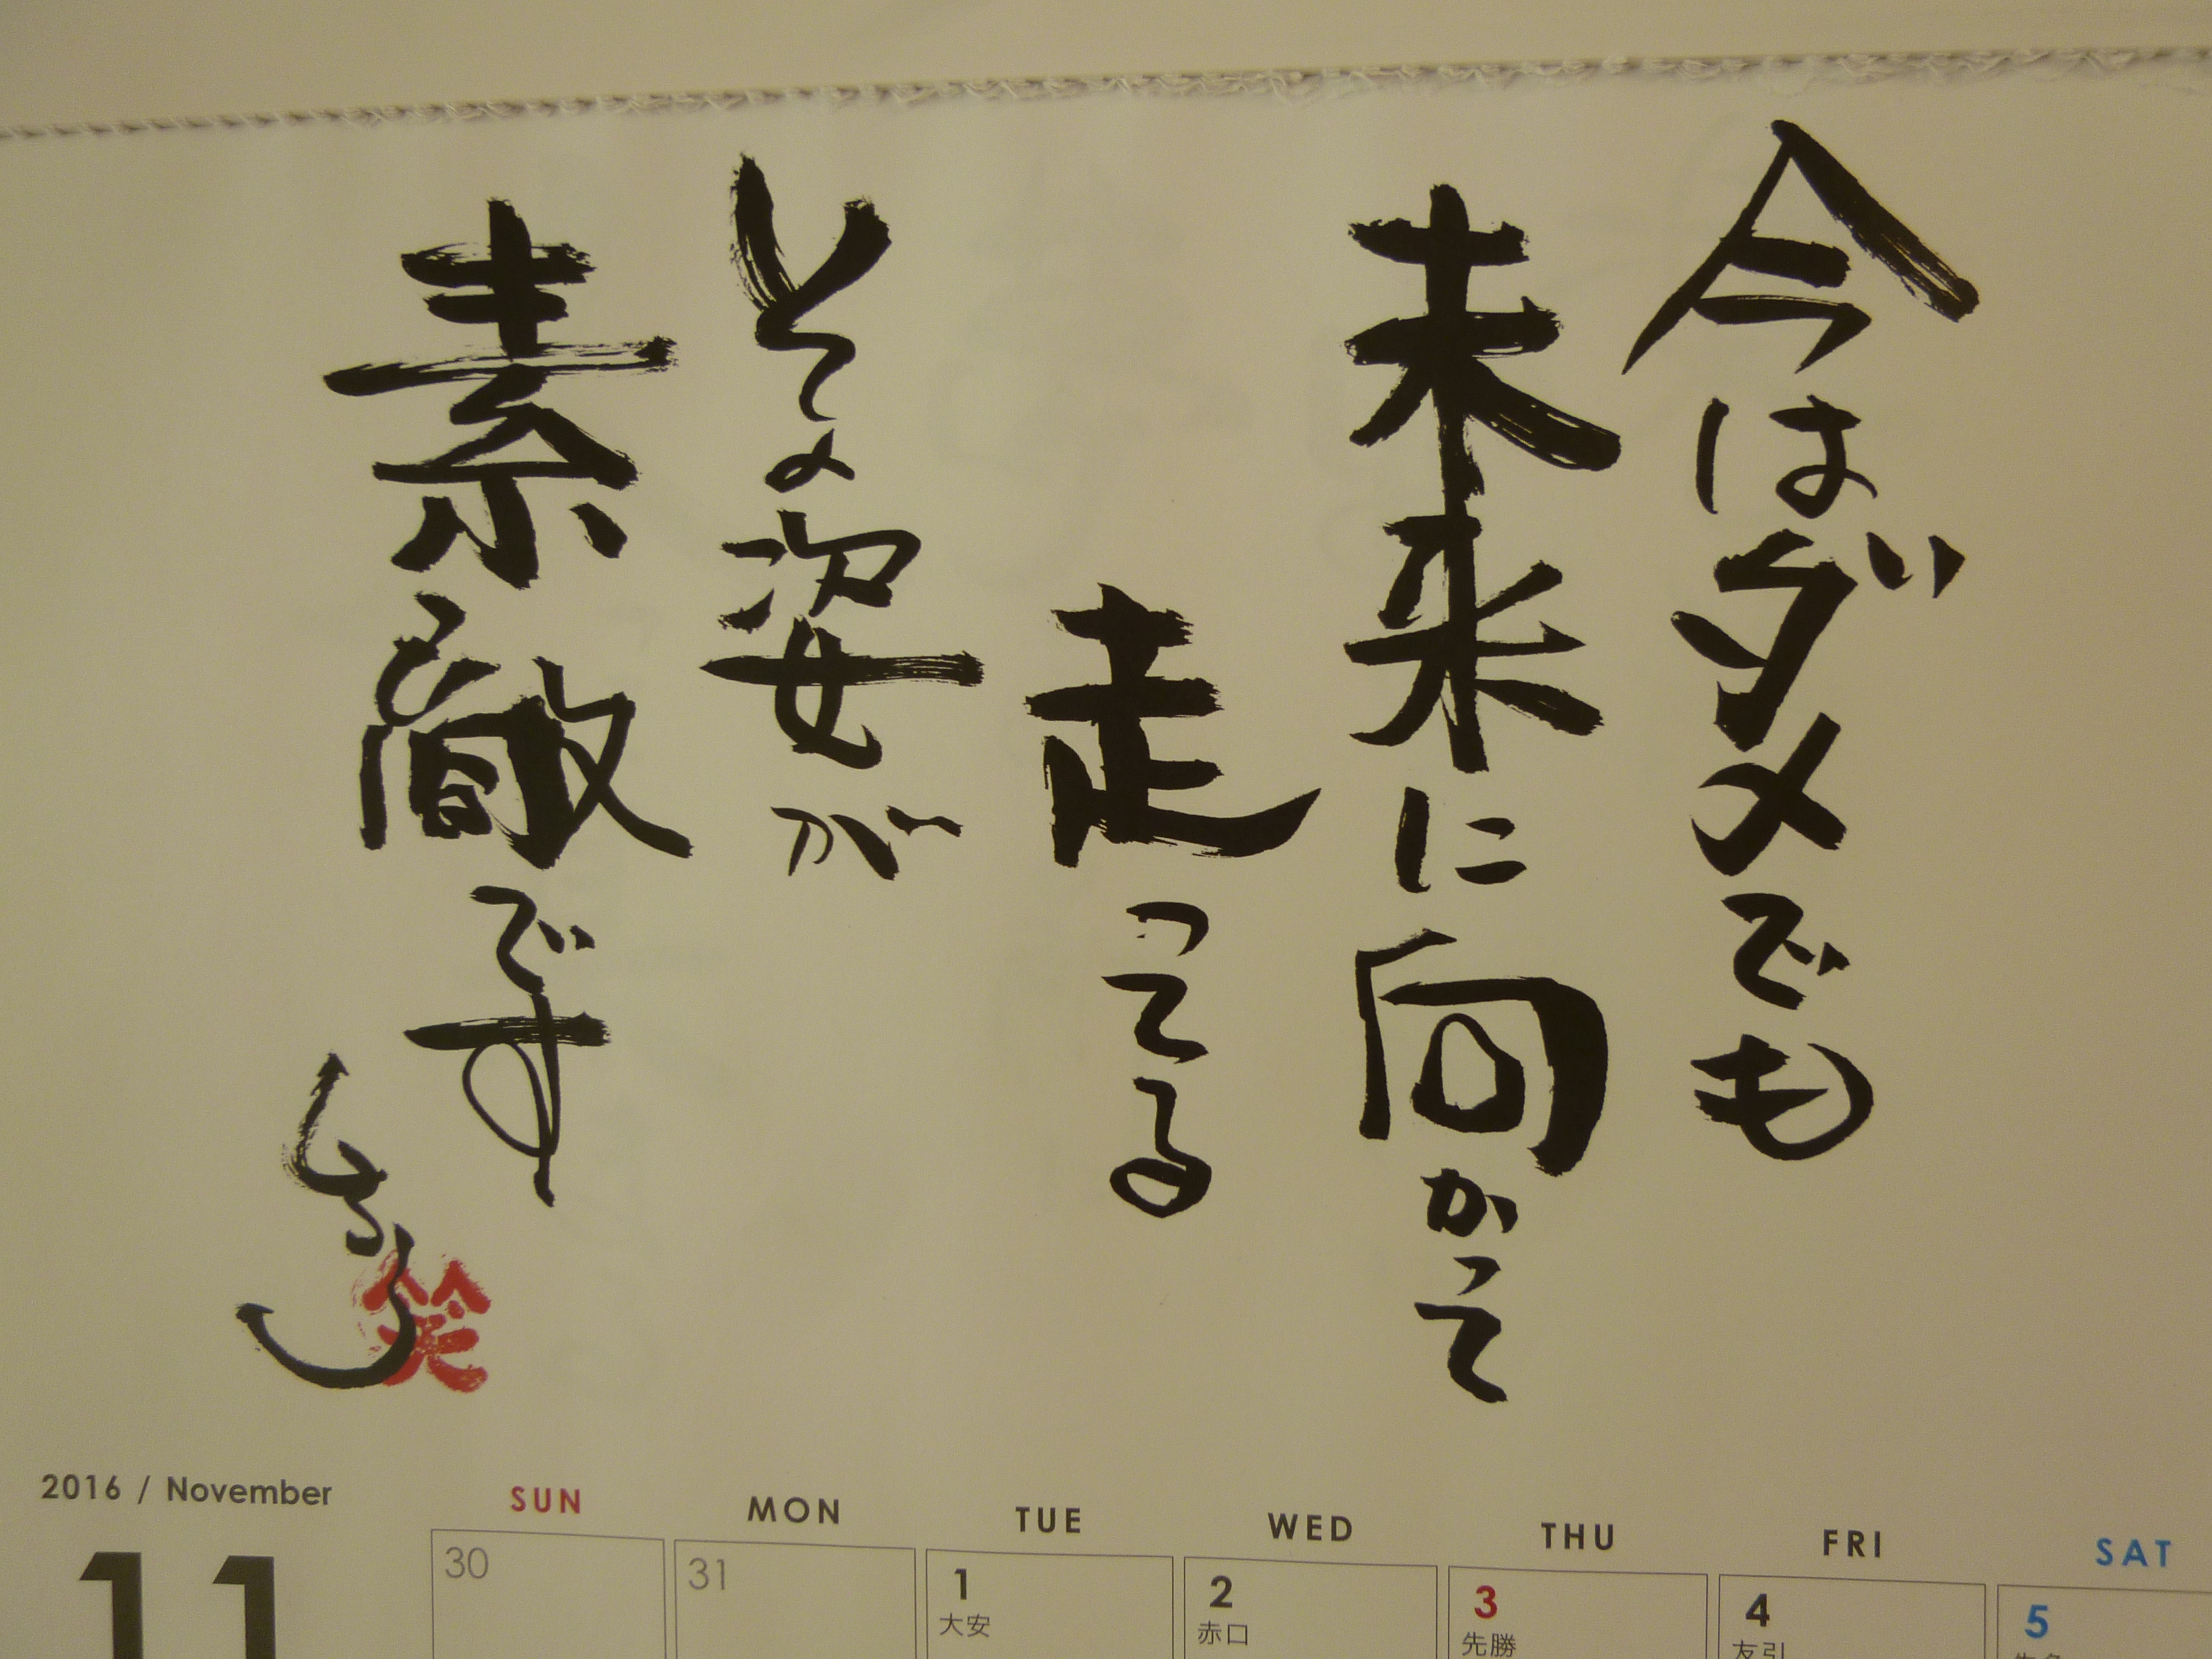 今はダメでも
未来に向かって
走ってる
その姿が
素敵です
笑
2016 / November
11
SUN MON TUE WED THU FRI SAT
30 31 1 2 3 4 5
大安 赤口 先勝 友引